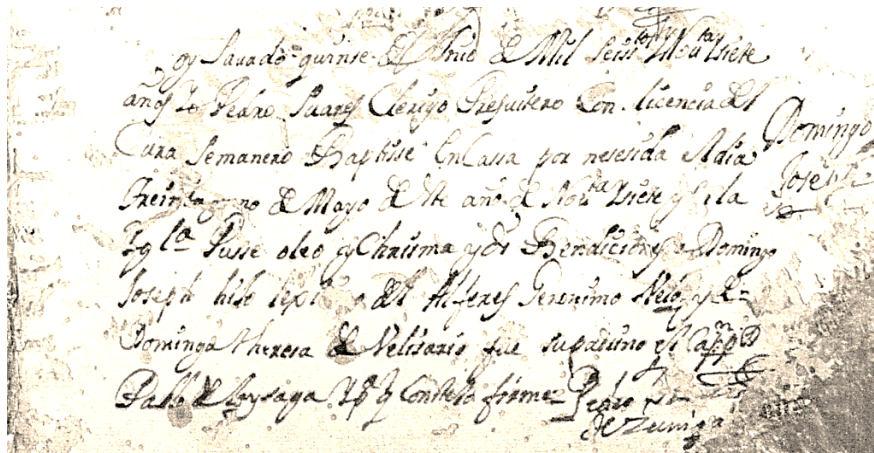 oy Savado quinse de Junio de Mil Seisstos Nouta Ysiete
años Yo Pedro Suares Clerigo Presuitero Con licencia del
Cura Semanero Baptisse En Cassa por nesesida Al dia
Treintayuno de Mayo de ste año de Nouta Ysiete y En la
Ygla Pusse oleo y Chrisma y di Bendiciones a Domingo
Joseph hijo lexmo del Alferes Geronimo y de
Dominga theresa de Velisario fue su padrino el Cappn D
Pablo de Loysaga Y pa q Conste lo firme Pedro
de Zuniga
Domingo
Joseph